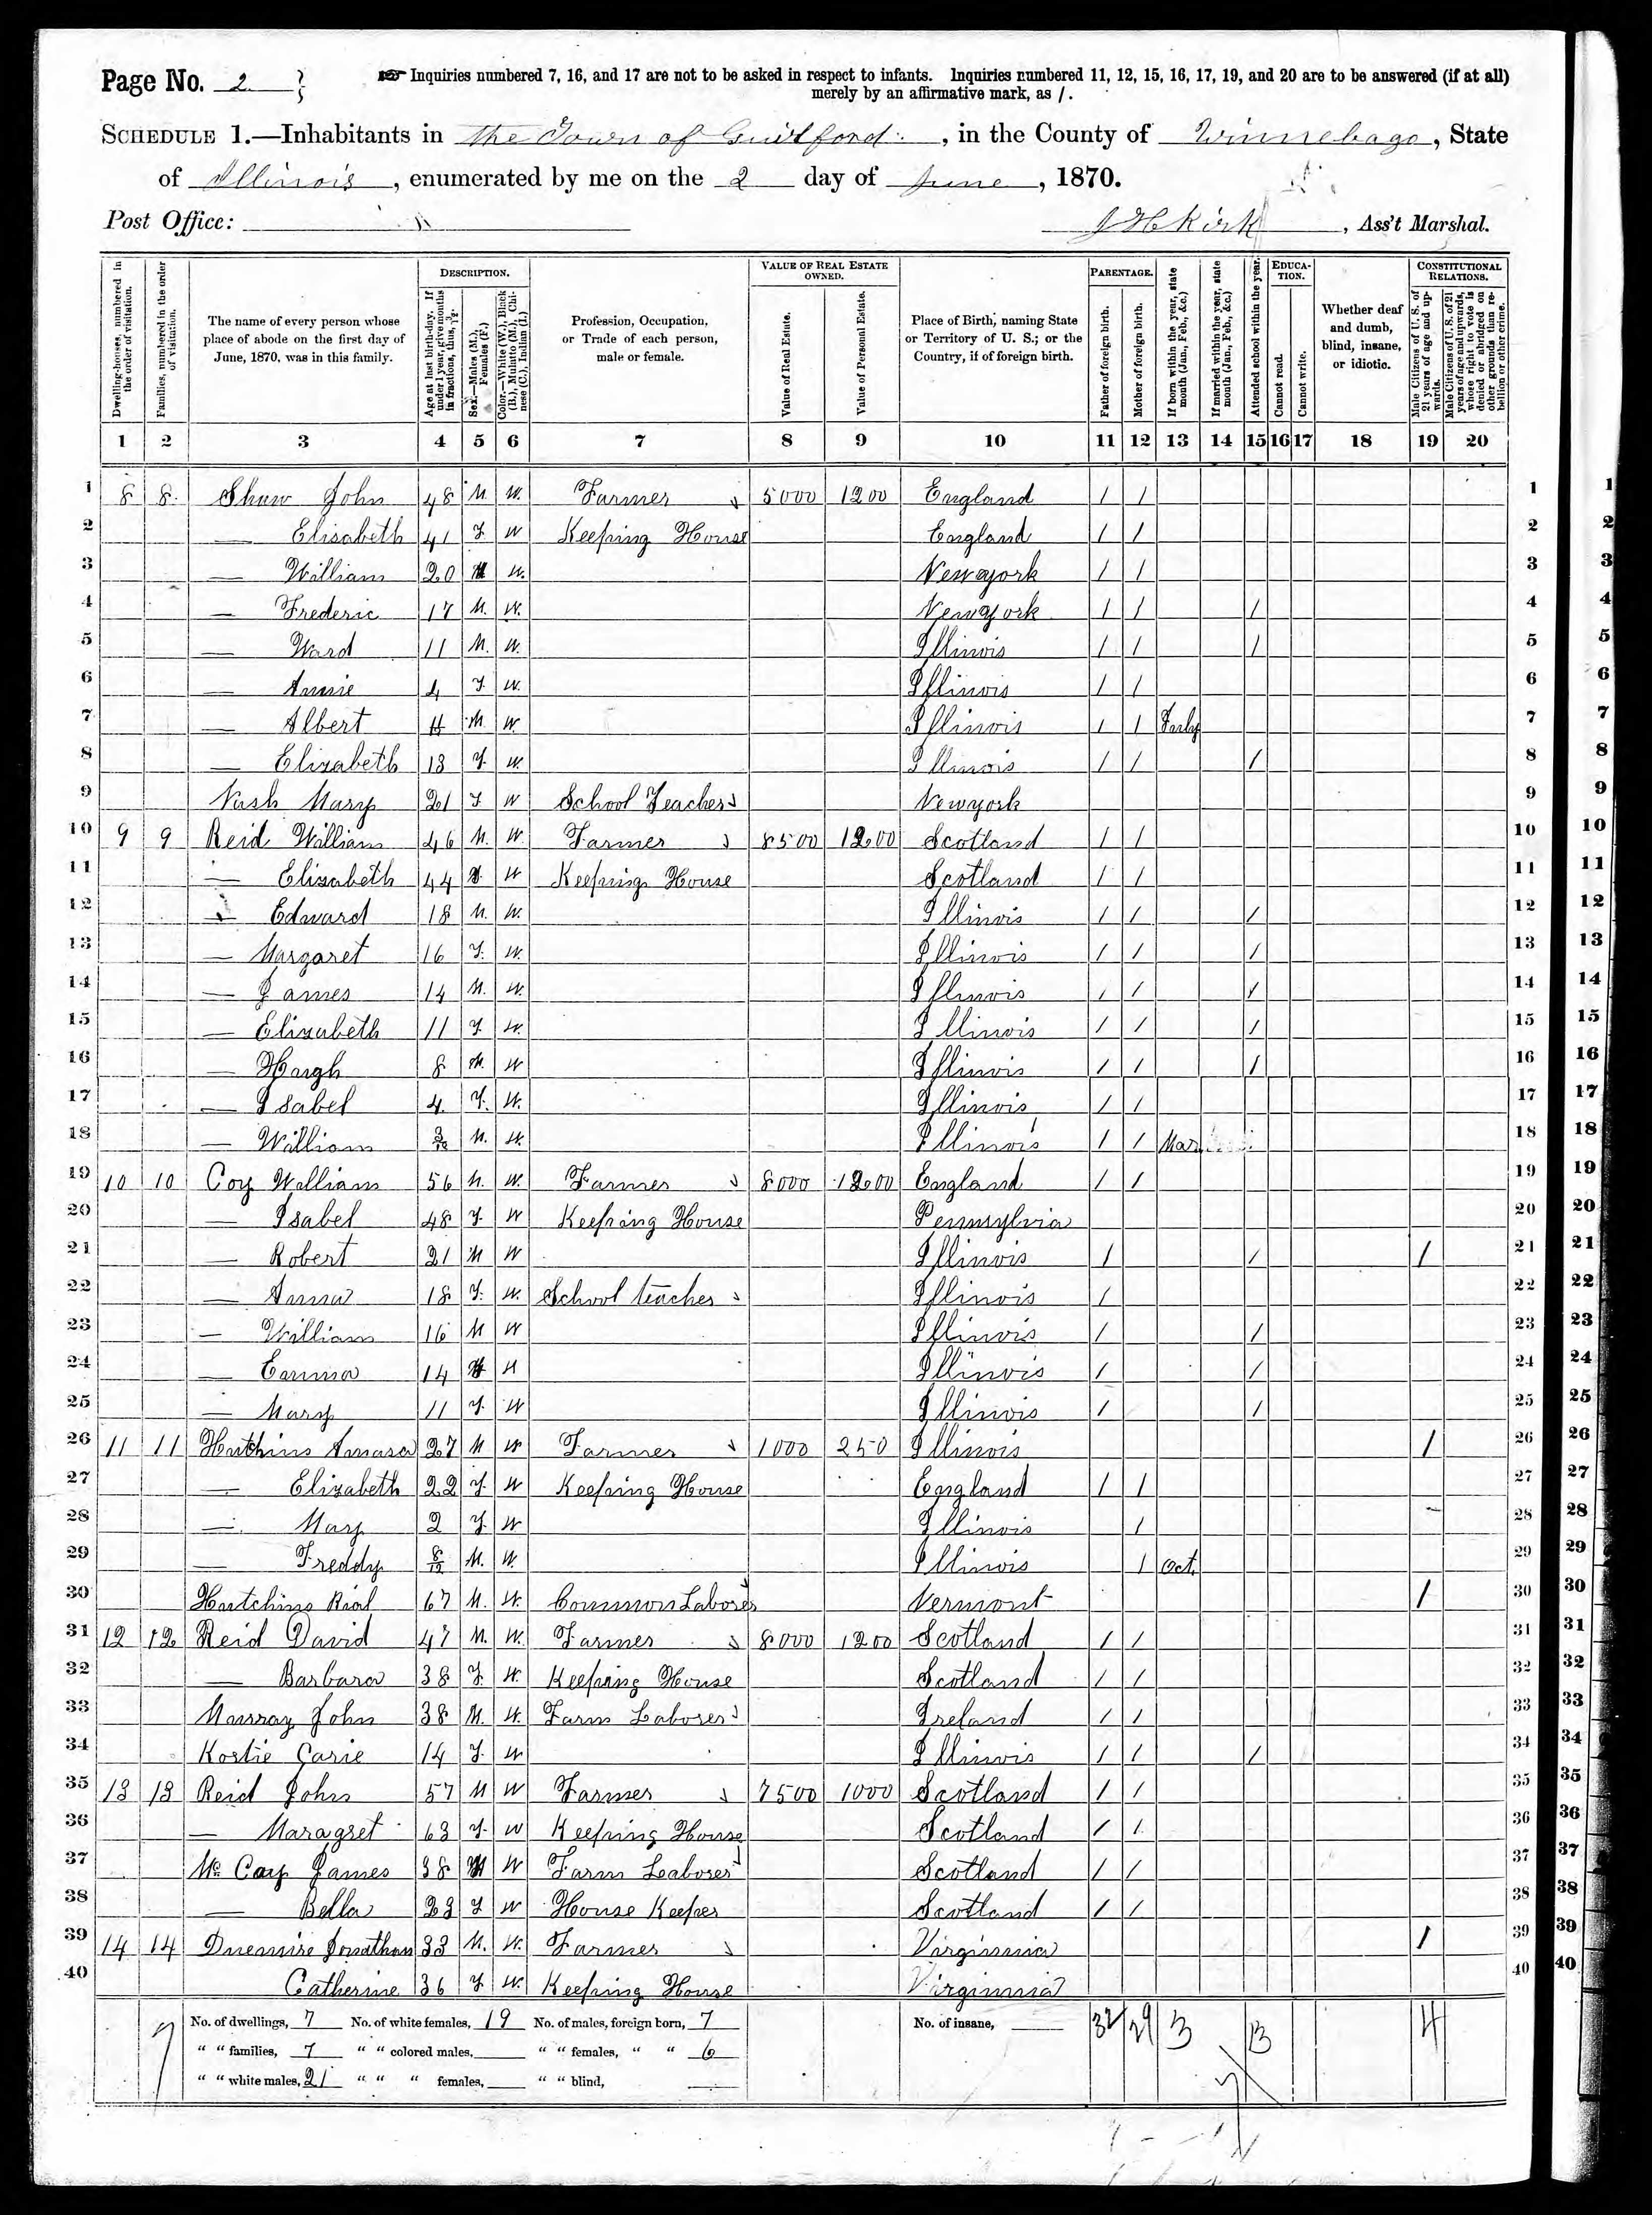 Page No. 2
Inquiries numbered 7, 16, and 17 are not to be asked in respect to infants. Inquiries numbered 11, 12, 15, 16, 17, 19, and 20 are to be answered (if at all)
merely by an affirmative mark, as /.
SCHEDULE 1.—Inhabitants in the Town of Guilford, in the County of Winnebago, State
of Illinois, enumerated by me on the 2 day of June, 1870.
Post Office:
J H Kirk, Ass't Marshal.
DESCRIPTION. VALUE OF REAL ESTATE OWNED. PARENTAGE. EDUCATION. CONSTITUTIONAL RELATIONS.
Dwelling-houses, numbered in the order of visitation.
Families, numbered in the order of visitation.
The name of every person whose place of abode on the first day of June, 1870, was in this family.
Age at last birth-day. If under 1 year, give months in fractions, thus, 3/12.
Sex.—Males (M.), Females (F.)
Color.—White (W.), Black (B.), Mulatto (M.), Chinese (C.), Indian (I.)
Profession, Occupation, or Trade of each person, male or female.
Value of Real Estate.
Value of Personal Estate.
Place of Birth, naming State or Territory of U. S.; or the Country, if of foreign birth.
Father of foreign birth.
Mother of foreign birth.
If born within the year, state month (Jan., Feb., &c.)
If married within the year, state month (Jan., Feb., &c.)
Attended school within the year.
Cannot read.
Cannot write.
Whether deaf and dumb, blind, insane, or idiotic.
Male Citizens of U. S. of 21 years of age and upwards.
Male Citizens of U. S. of 21 years of age and upwards, whose right to vote is denied or abridged on other grounds than rebellion or other crime.
1 2 3 4 5 6 7 8 9 10 11 12 13 14 15 16 17 18 19 20
1 8 8 Shaw John 48 M. W. Farmer 5000 1200 England / / 1 1
2 — Elisabeth 41 F. W Keeping House England / / 2 2
3 — William 20 M W. Newyork / / 3 3
4 — Frederic 17 M. W. Newyork / / / 4 4
5 — Ward 11 M. W. Illinois / / / 5 5
6 — Annie 4 F. W. Illinois / / 6 6
7 — Albert M. W. Illinois / / 7 7
8 — Elizabeth 13 F. W. Illinois / / / 8 8
9 Nash Mary 21 F W School Teacher Newyork 9 9
10 9 9 Reid William 46 M. W. Farmer 8500 1200 Scotland / / 10 10
11 — Elisabeth 44 F. W Keeping House Scotland / / 11 11
12 — Edward 18 M. W. Illinois / / / 12 12
13 — Margaret 16 F. W. Illinois / / / 13 13
14 — James 14 M. W. Illinois / / / 14 14
15 — Elizabeth 11 F. W. Illinois / / / 15 15
16 — Hargh 8 M. W Illinois / / / 16 16
17 — Isabel 4 F. W. Illinois / / 17 17
18 — William 3/12 M. W. Illinois / / Mar 18 18
19 10 10 Coy William 56 M. W. Farmer 8000 1200 England / / 19 19
20 — Isabel 48 F. W Keeping House Pennsylvia 20 20
21 — Robert 21 M W Illinois / / / 21 21
22 — Anna 18 F. W. School teacher Illinois / 22 22
23 — William 16 M W Illinois / / 23 23
24 — Emma 14 F W Illinois / / 24 24
25 — Mary 11 F. W Illinois / / 25 25
26 11 11 Hutchins Amasa 27 M W Farmer 1000 250 Illinois / 26 26
27 — Elizabeth 22 F. W Keeping House England / / 27 27
28 — Mary 2 F. W Illinois / 28 28
29 — Freddy 8/12 M. W. Illinois / Oct. 29 29
30 Hutchins Rial 67 M. W. Common Laborer Vermont / 30 30
31 12 12 Reid David 47 M. W. Farmer 8000 1200 Scotland / / 31 31
32 — Barbara 38 F. W. Keeping House Scotland / / 32 32
33 Murray John 38 M. W. Farm Laborer Ireland / / 33 33
34 Kostie Carie 14 F. W Illinois / / / 34 34
35 13 13 Reid John 57 M W Farmer 7500 1000 Scotland / / 35 35
36 — Maragret 63 F. W Keeping House Scotland / / 36 36
37 Mc Coy James 38 M W Farm Laborer Scotland / / 37 37
38 — Bella 23 F W House Keeper Scotland / / 38 38
39 14 14 Duemire Jonathan 33 M. W. Farmer Virginnia / 39 39
40 Catherine 36 F W. Keeping House Virginnia 40 40
No. of dwellings, 7 No. of white females, 19 No. of males, foreign born, 7 No. of insane, 32 29 3 13 4
" " families, 7 " " colored males, " " females, " " 6
" " white males, 21 " " " females, " " blind,